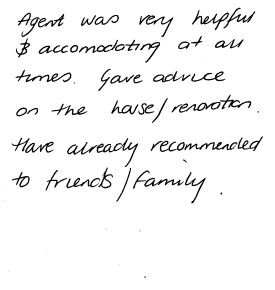 Agent was very helpful
& accomodating at all
times. Gave advice
on the house/renovation.
Have already recommended
to friends/family.